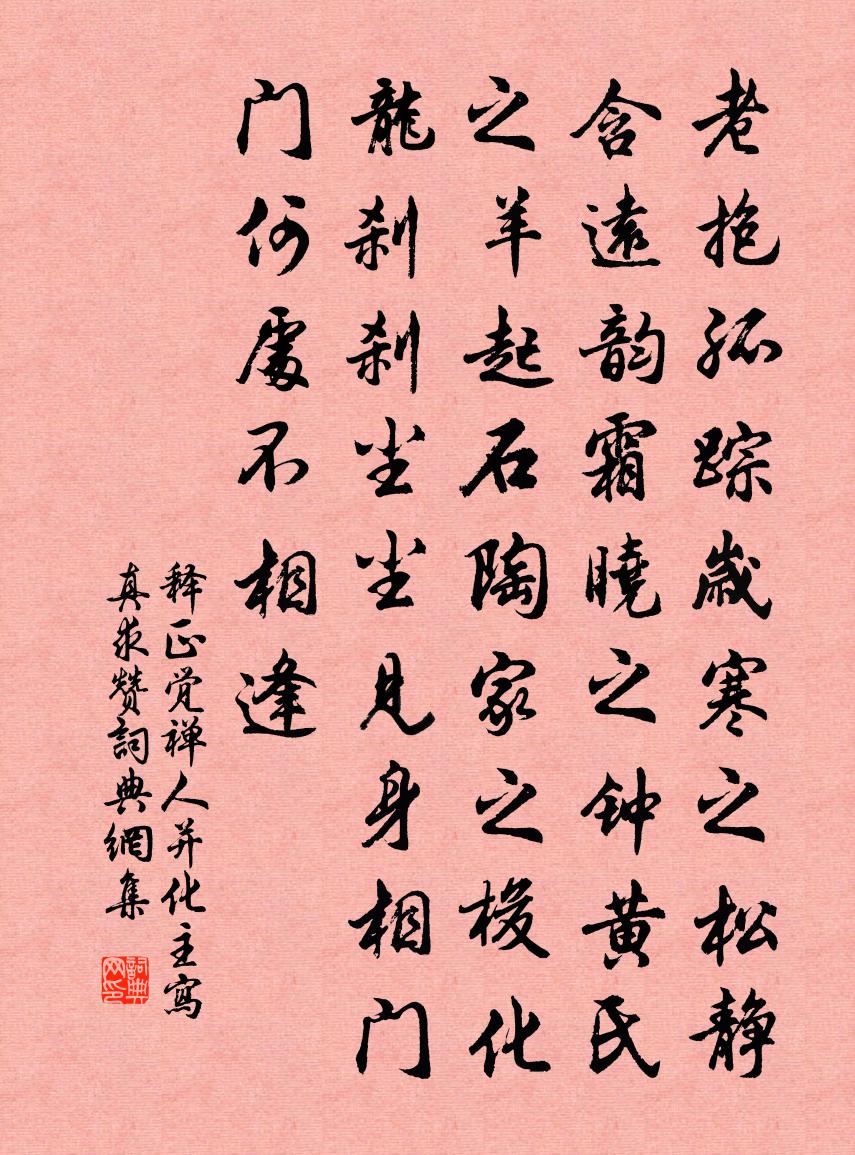 老抱孤踪歲寒之松静
含遠韵霜曉之钟黄氏
之羊起石陶家之梭化
龍刹刹尘尘見身相门
门何處不相逢
释正觉禅人并化主寫
真求赞詞典網集
詞典网印